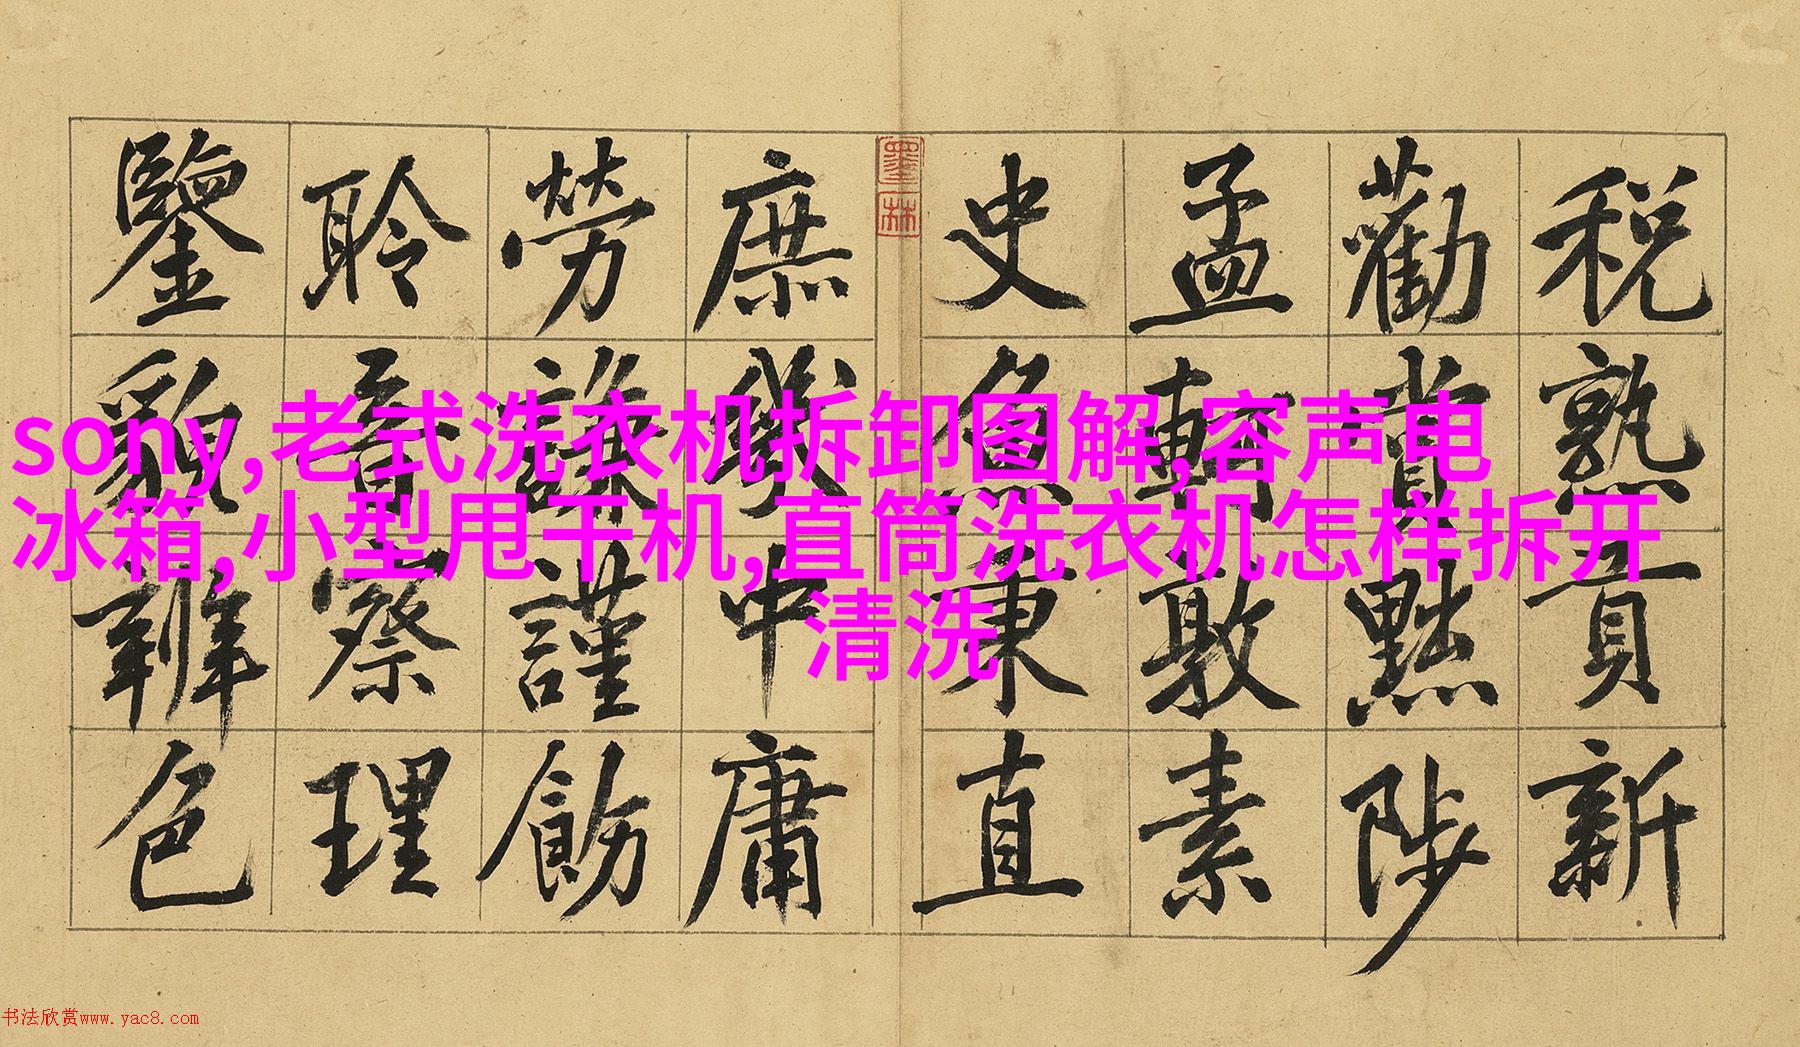 税熟貢新
勸賞黜陟
孟軻敦素
史魚秉直
墨林
庶幾中庸
勞謙謹飭
聆音察理
鑒貌辨色
sony,老式洗衣机拆卸图解,容声电
冰箱,小型甩干机,直筒洗衣机怎样拆开
清洗
书法欣赏www.yac8.com